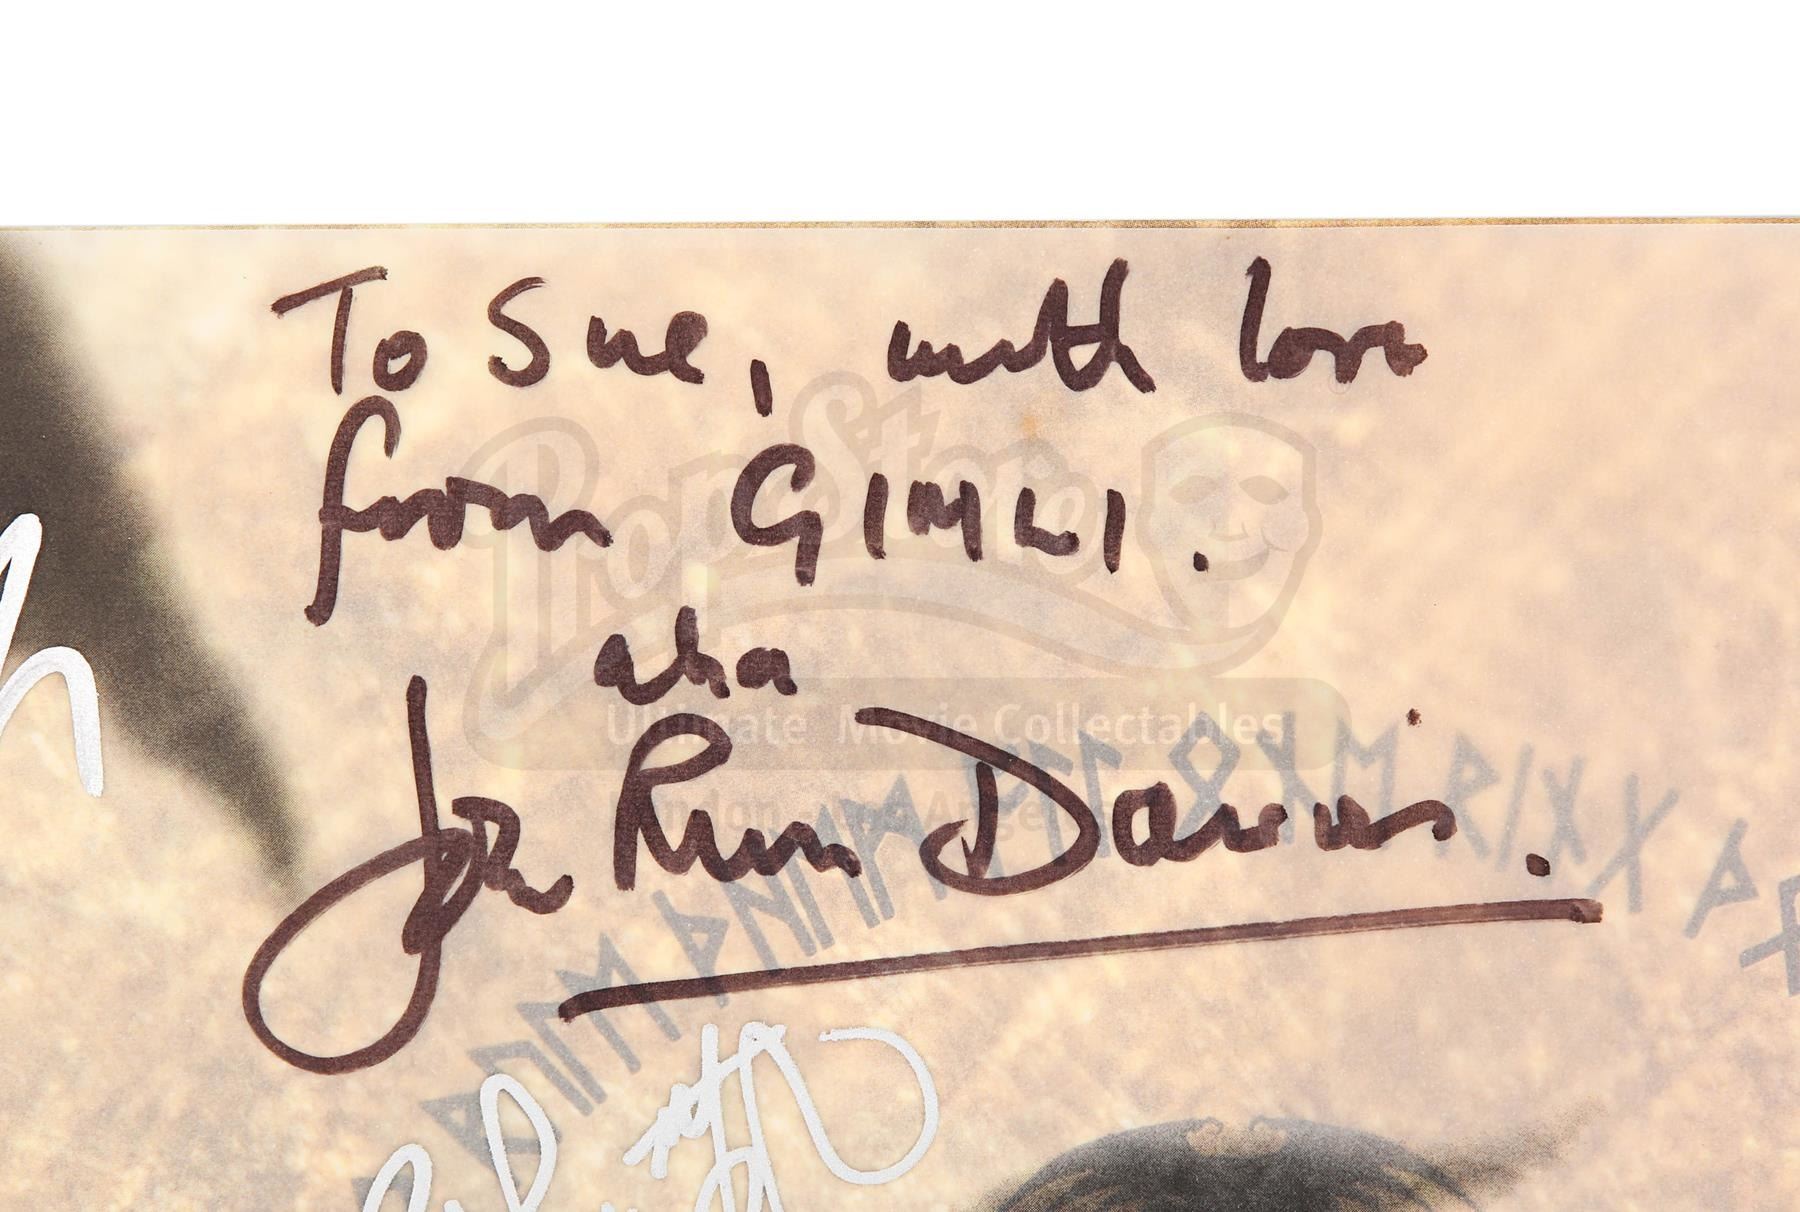 To Sue, with love
from GIMLI.
aka
John Rhys Davies.
PropStore
Ultimate Movie Collectables
London - Los Angeles